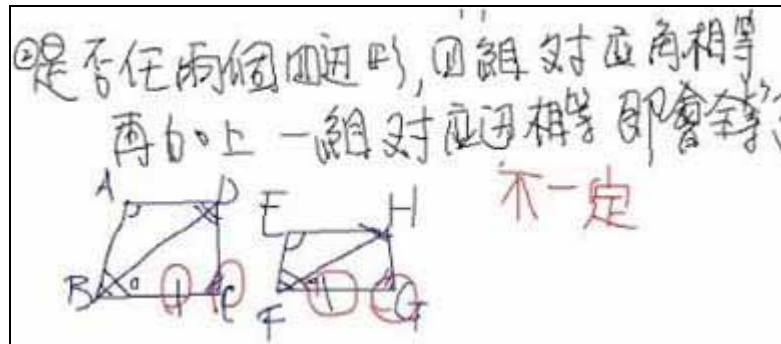 ②是否任兩個四边形,四組对应角相等
再加上一組对应边相等即會全等?
不一定
A D E H
B C F G